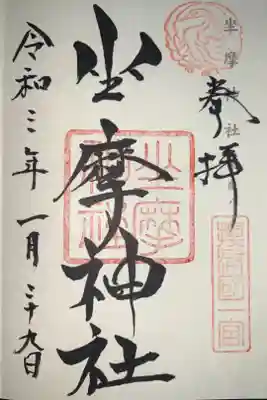 坐摩神社
奉拝
坐摩神社
摂津国一宮
坐摩神社
令和三年一月二十九日